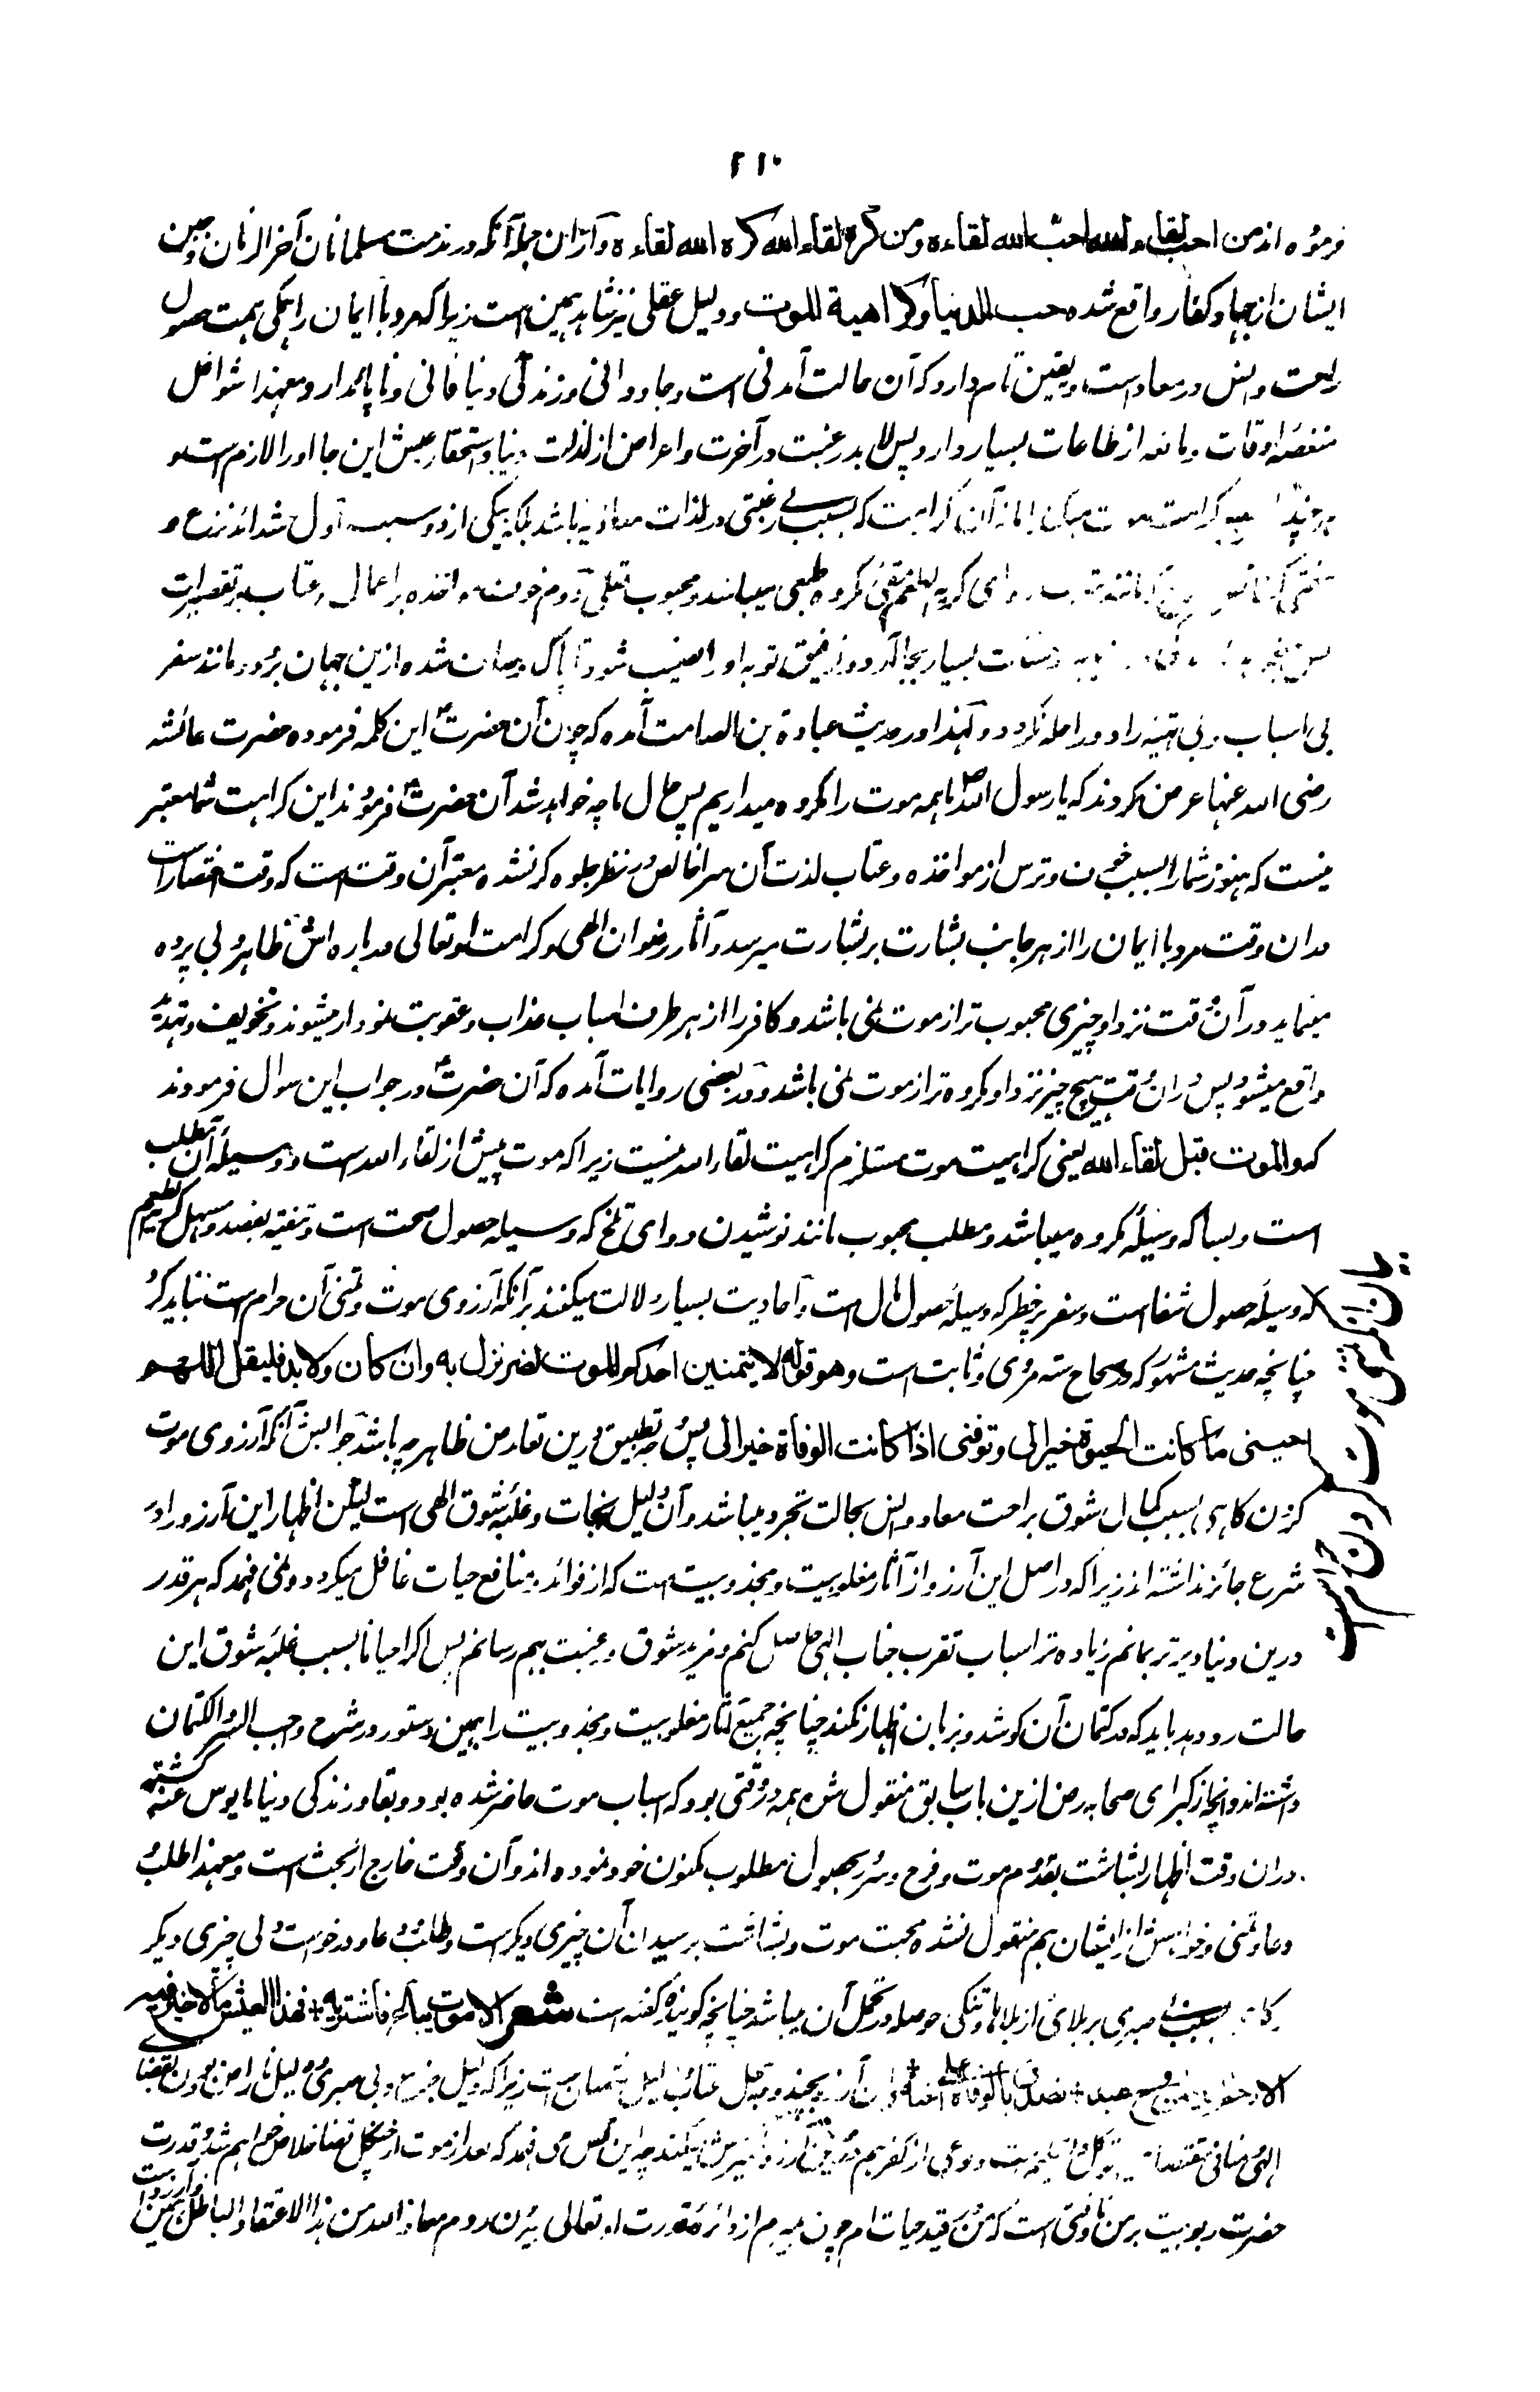 ۲۱۰
فرموده اند من احب لقاء الله احب الله لقاءه ومن کره لقاء الله کره الله لقاءه و ازان جمله آنکه در مذمت مسلمانان آخر الزمان و جبن
ایشان از جهاد کفار واقع شده حب الدنیا وکراهیة الموت و دلیل عقلی نیز شاهد همین است زیرا که مرد با ایمان را همگی همت حصول
راحت و انس در معاد است و یقین تام دارد که آن حالت آمدنی است و جاودانی و زندگی دنیا فانی و ناپائدار و معهذا شواغل
منغصه اوقات و مانعه از طاعات بسیار دارد پس لابد رغبت در آخرت و اعراض از لذات دنیا و استحقار عیش این جا او را لازم است و
هر چند کراهیت موت بسبب بی رغبتی در لذات معادیه باشد بلکه بیکی از دو سبب اول شدائد نزع و
مانند دوای کریه الطعم مکروه طبعی میباشد و محبوب عقلی دوم خوف مواخذه بر اعمال و عتاب بر تقصیرات
بسیار بجا آرد و توفیق توبه او را نصیب شود تا پاک و صاف شده ازین جهان برود مانند سفر
بی اسباب و بی تهیه زاد و راحله نگردد و لهذا در حدیث عبادة بن الصامت آمده که چون آن حضرت ص این کلمه فرمودند حضرت عائشه
رضی الله عنها عرض کردند که یا رسول الله ص ما همه موت را مکروه میداریم پس حال ما چه خواهد شد آن حضرت ص فرمودند این کراهیت شما معتبر
نیست که هنوز شما را بسبب خوف و ترس از مواخذه و عتاب لذت آن سرا خالص در نظر جلوه گر نشده معتبر آن وقت است که وقت احتضار است
دران وقت مرد با ایمان را از هر جانب بشارت بر بشارت میرسد و آثار رضوان الهی و کرامت او تعالی در باره اش ظاهر و بی پرده
مینماید در آن وقت نزد او چیزی محبوب تر از موت نمی باشد و کافر را از هر طرف اسباب عذاب و عقوبت نمودار میشوند و تخویف و تهدید
واقع میشود پس دران وقت هیچ چیز نزد او مکروه تر از موت نمی باشد و در بعضی روایات آمده که آن حضرت ص در جواب این سوال فرمودند
که والموت قبل لقاء الله یعنی کراهیت موت مستلزم کراهیت لقاء الله نیست زیرا که موت پیش از لقاء الله است و وسیله آن مطلب
است و بسا که وسیله مکروه میباشد و مطلب محبوب مانند نوشیدن دوای تلخ که وسیله حصول صحت است و تنقیه بفصد و مسهل کریه الطعم
که وسیله حصول شفا است و سفر پر خطر که وسیله حصول مال است و احادیث بسیار دلالت میکنند بر آنکه آرزوی موت و تمنی آن حرام است نباید کرد
چنانچه حدیث مشهور که در صحاح سته مروی و ثابت است وهو قوله لا یتمنین احدکم الموت لضر نزل به وان کان ولابد فلیقل اللهم
احینی ما کانت الحیوة خیرا لی وتوفنی اذا کانت الوفاة خیرا لی پس وجه تطبیق درین تعارض ظاهر چه باشد جوابش آنکه آرزوی موت
کردن گاهی بسبب کمال شوق براحت معاد و انس بحالت تجرد میباشد و آن دلیل نجات و غلبه شوق الهی است لیکن اظهار این آرزو را در
شرع جائز نداشته اند زیرا که در اصل این آرزو از آثار مغلوبیت و مجذوبیت است که از فوائد و منافع حیات غافل میگردد و نمی فهمد که هر قدر
درین دنیا دیر تر بمانم زیاده تر اسباب تقرب جناب الهی حاصل کنم و مزید شوق و رغبت بهم رسانم پس اگر احیانا بسبب غلبه شوق این
حالت رو دهد باید که در کتمان آن کوشد و بزبان اظهار نکند چنانچه جمیع آثار مغلوبیت و مجذوبیت را همین دستور در شرع واجب الستر والکتمان
داشته اند و آنچه از کبرای صحابه رض ازین باب سابق منقول شده همه در وقتی بود که اسباب موت حاضر شده بود و بقاء زندگی دنیا مایوس عنه گشته
دران وقت اظهار بشاشت بقدوم موت و فرح و سرور بحصول مطلوب مکنون خود نموده اند و آن وقت خارج از بحث است و معهذا طلب و
دعا و تمنی و خواهش از ایشان هم منقول نشده محبت موت و بشاشت برسیدن آن چیزی دیگر است و طلب و دعا و درخواست وی چیزی دیگر
گاهی بسبب بی صبری بر بلای از بلاها و تنگی حوصله در تحمل آن میباشد چنانچه گوینده گفته است شعر الا موت یباع فاشتریه + فهذا العیش ما لا خیر فیه
الا رحم المهیمن روح عبد + تصدق بالوفاة علی اخیه
الهی منافی مقتضای توکل و تسلیم است چه این کس می فهمد که بعد از موت از چنگل قضا خلاص خواهم شد و قدرت
حضرت ربوبیت بر من تا وقتی است که من در قید حیات ام چون میرم از دائره قدرت او تعالی بیرون روم معاذ الله من هذا الاعتقاد الباطل
بیان آنکه تمنی موت کردن حرام است